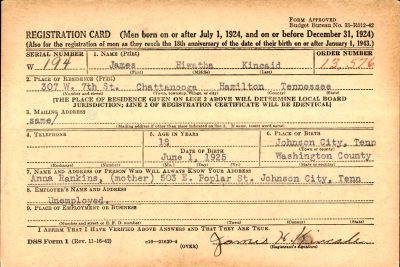 FORM APPROVED
Budget Bureau No. 33-R012-42
REGISTRATION CARD (Men born on or after July 1, 1924, and on or before December 31, 1924)
(Also for the registration of men as they reach the 18th anniversary of the date of their birth on or after January 1, 1943.)
SERIAL NUMBER 1. NAME (Print) ORDER NUMBER
W 194 James Hiwatha Kincaid 13,576
(First) (Middle) (Last)
2. PLACE OF RESIDENCE (Print)
307 W. 7th St. Chattanooga Hamilton Tennessee
(Number and street) (Town, township, village, or city) (County) (State)
[THE PLACE OF RESIDENCE GIVEN ON LINE 2 ABOVE WILL DETERMINE LOCAL BOARD
JURISDICTION; LINE 2 OF REGISTRATION CERTIFICATE WILL BE IDENTICAL]
3. MAILING ADDRESS
same/
[Mailing address if other than place indicated on line 2. If same, insert word same]
4. TELEPHONE 5. AGE IN YEARS 6. PLACE OF BIRTH
18 Johnson City, Tenn
DATE OF BIRTH (Town or county)
June 1, 1925 Washington County
(Exchange) (Number) (Mo.) (Day) (Yr.) (State or country)
7. NAME AND ADDRESS OF PERSON WHO WILL ALWAYS KNOW YOUR ADDRESS
Anna Hankins, (mother) 503 E. Poplar St. Johnson City, Tenn
8. EMPLOYER'S NAME AND ADDRESS
Unemployed.
9. PLACE OF EMPLOYMENT OR BUSINESS
(Number and street or R. F. D. number) (Town) (County) (State)
I AFFIRM THAT I HAVE VERIFIED ABOVE ANSWERS AND THAT THEY ARE TRUE.
DSS Form 1 (Rev. 11-16-42) (OVER) James H. Kincaid
(Registrant's signature)